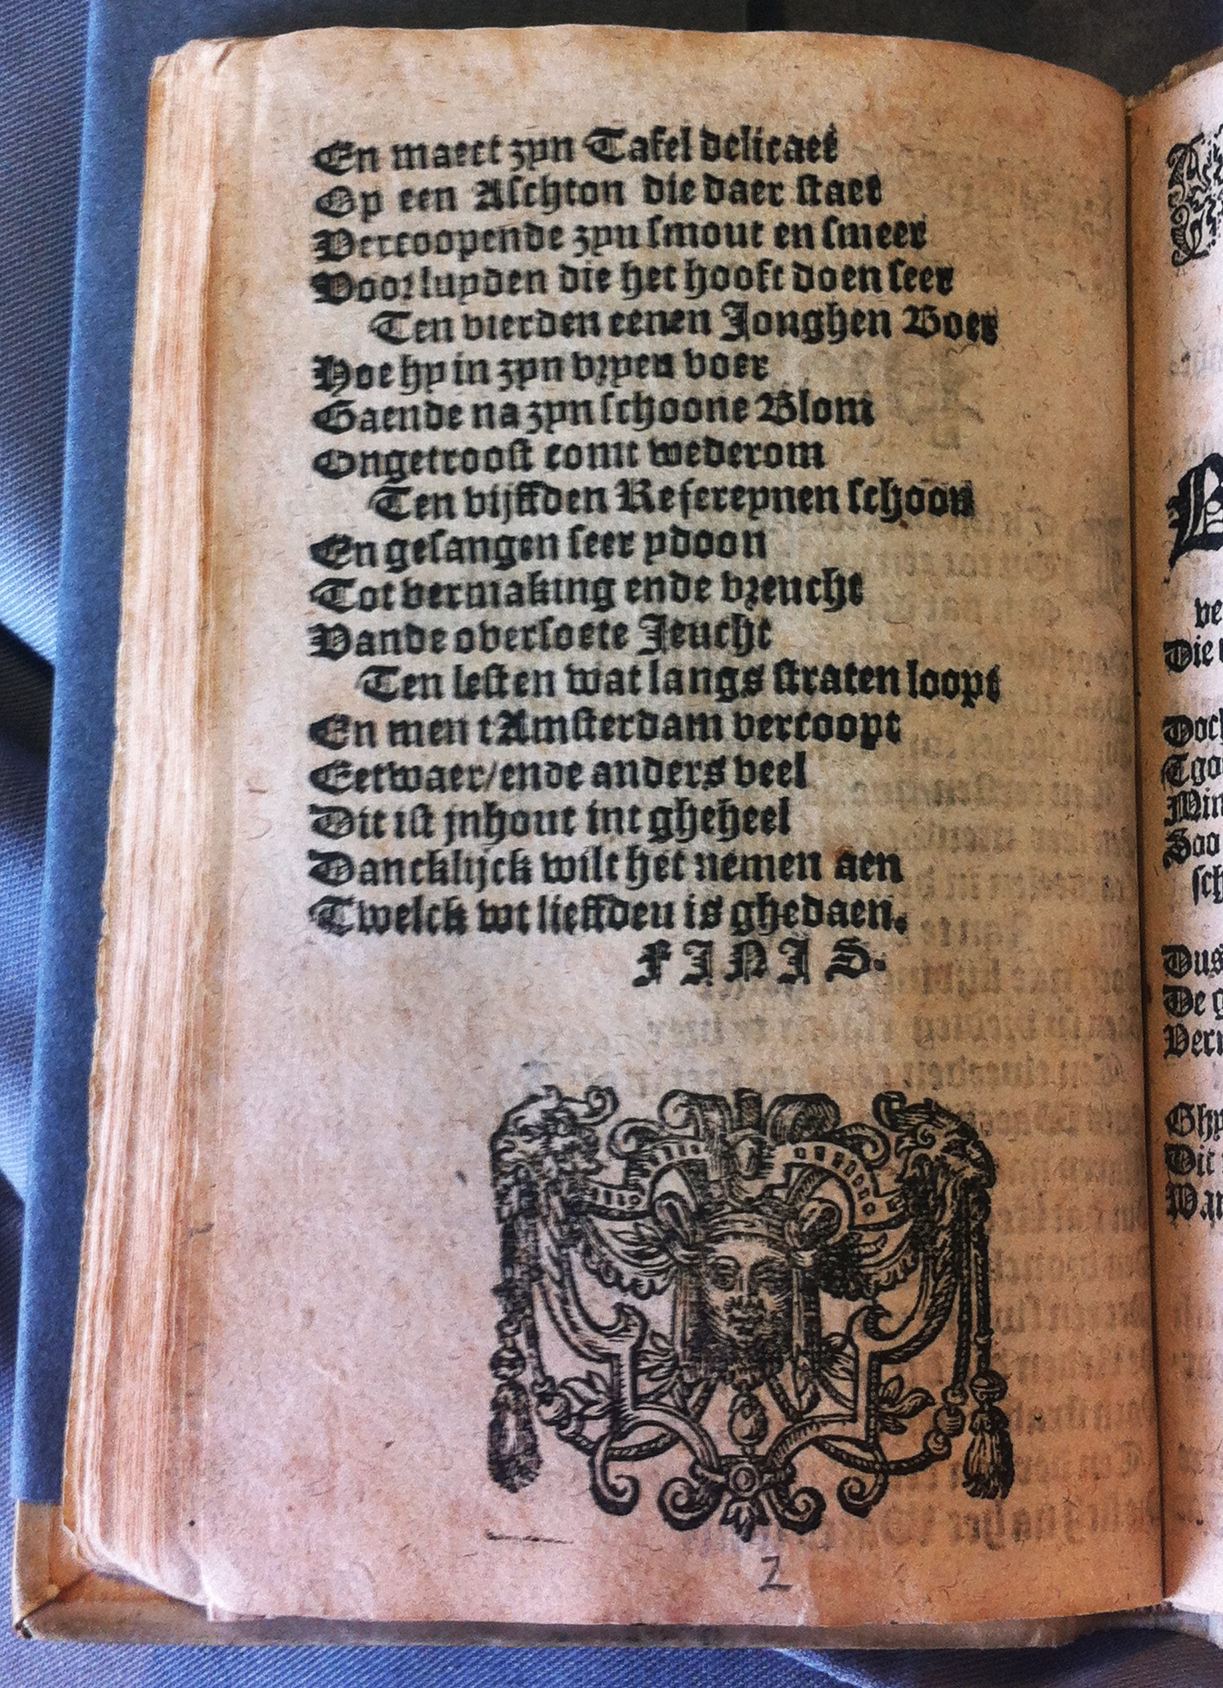 En maect zyn Tafel delicaet
Op een Aschton die daer staet
Vercoopende zyn smout en smeer
Voor luyden die het hooft doen seer
Ten vierden eenen Jonghen Boer
Hoe hy in zyn vryen voer
Gaende na zyn schoone Blom
Ongetroost comt wederom
Ten vijffden Refereynen schoon
En gesangen seer ydoon
Tot vermaking ende vreucht
Vande oversoete Jeucht
Ten lesten wat langs straten loopt
En men tAmsterdam vercoopt
Eetwaer/ende anders veel
Dit ist jnhout int gheheel
Dancklijck wilt het nemen aen
Twelck wt lieffden is ghedaen.
FINIS.
2
ve
Die
Doch
Tgo
Min
Soo
sch
Dus
De g
Verr
Ghy
Dit
Wa